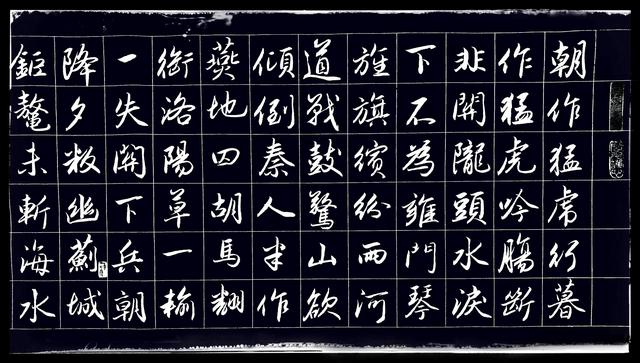 朝作猛虎行暮
作猛虎吟腸斷
非關隴頭水淚
下不為雍門琴
旌旗繽紛兩河
道戰鼓驚山欲
傾倒秦人半作
燕地囚胡馬翻
銜洛陽草一輸
一失關下兵朝
降夕叛幽薊城
鉅鼇未斬海水